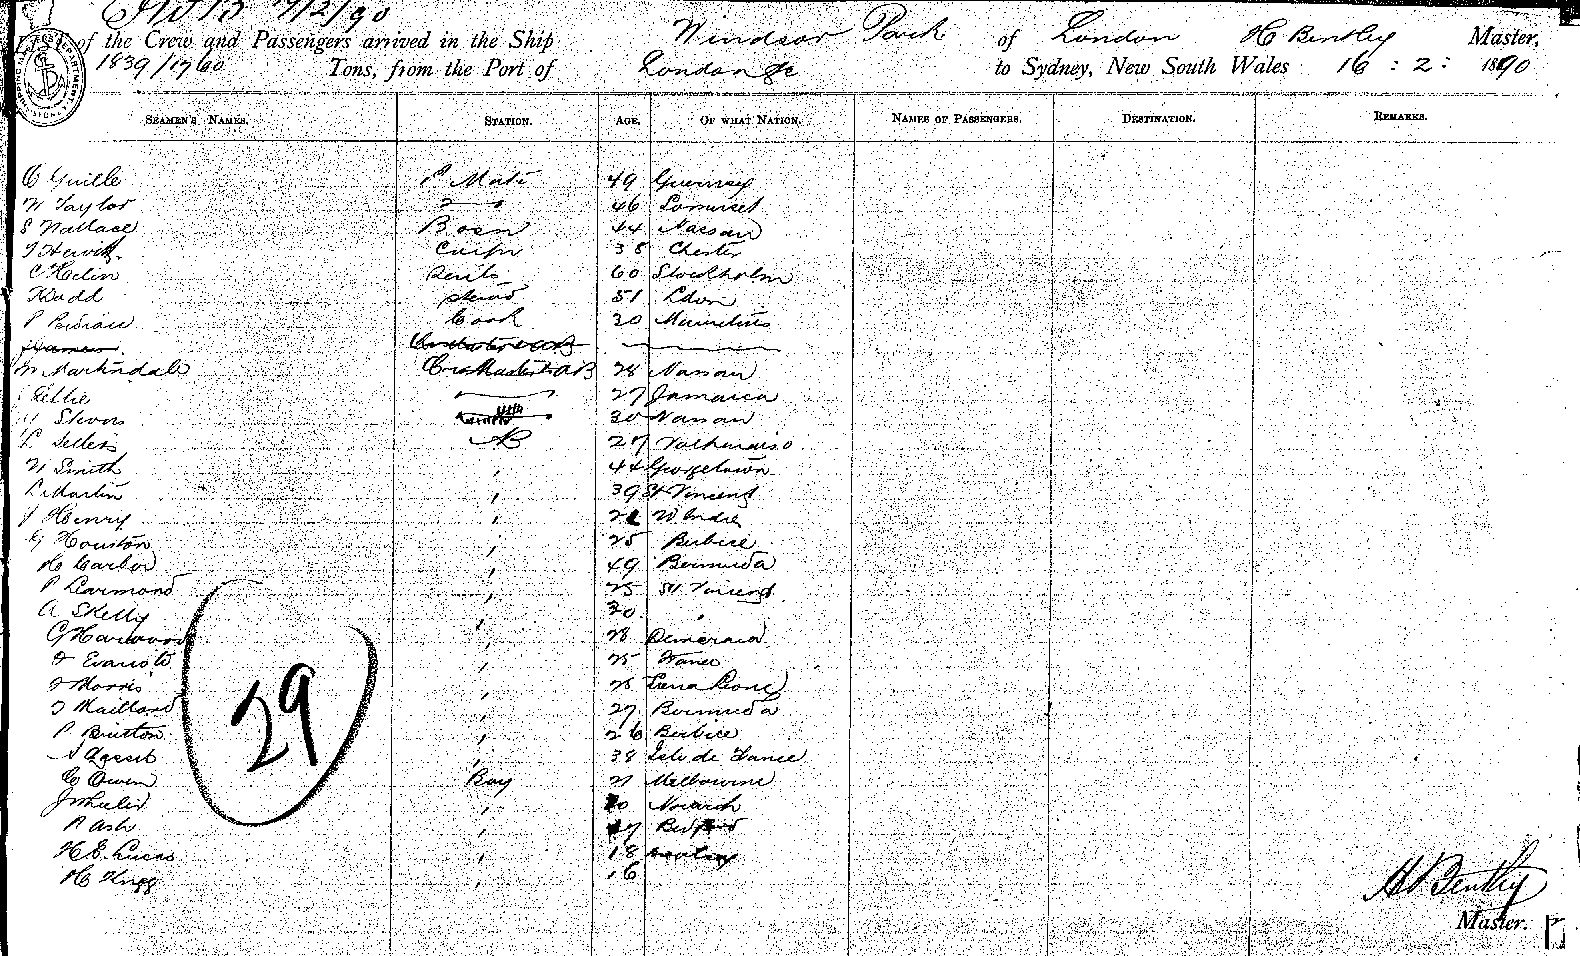 7/2/90
of the Crew and Passengers arrived in the Ship Windsor Park of London H Bentley Master,
1839/1760 Tons, from the Port of London to Sydney, New South Wales 16 : 2 : 1890
SEAMEN'S NAMES. STATION. AGE. OF WHAT NATION. NAMES OF PASSENGERS. DESTINATION. REMARKS.
C Guille Mate 49 Guernsey
W Taylor 46 Somerset
S Wallace Bosn 44 Nassau
T Hewitt Carpr 38 Chester
C Helin 60 Stockholm
Dodd Stewd 51
P Cook 30 Mauritius
Martindale 28 Nassau
Kellie 27 Jamaica
Stevens 30 Nassau
Sellers AB 27 Valparaiso
W Smith " 44 Georgetown
Martin " 39 St Vincent
J Henry " W Indie
G Houston " 25 Berbice
H Carbor " 49 Bermuda
P Learmond " 25 St Vincent
A Skelly " 20 "
G Harwood " 28 Demerara
Evans " 25
Morris " 26 Sierra Leone
T Maillard " 27 Bermuda
P Britton " 26 Berbice
" 38 Isle de France
C Owen Boy 21 Melbourne
J Wheeler " Norwich
P Ash " 17 Bedford
H E. Lucas " 18
H " 16
29
H Bentley
Master.